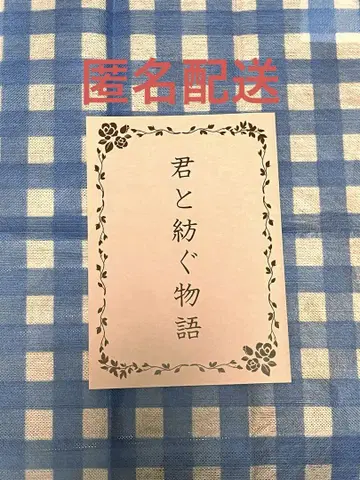 匿名配送
君と紡ぐ物語